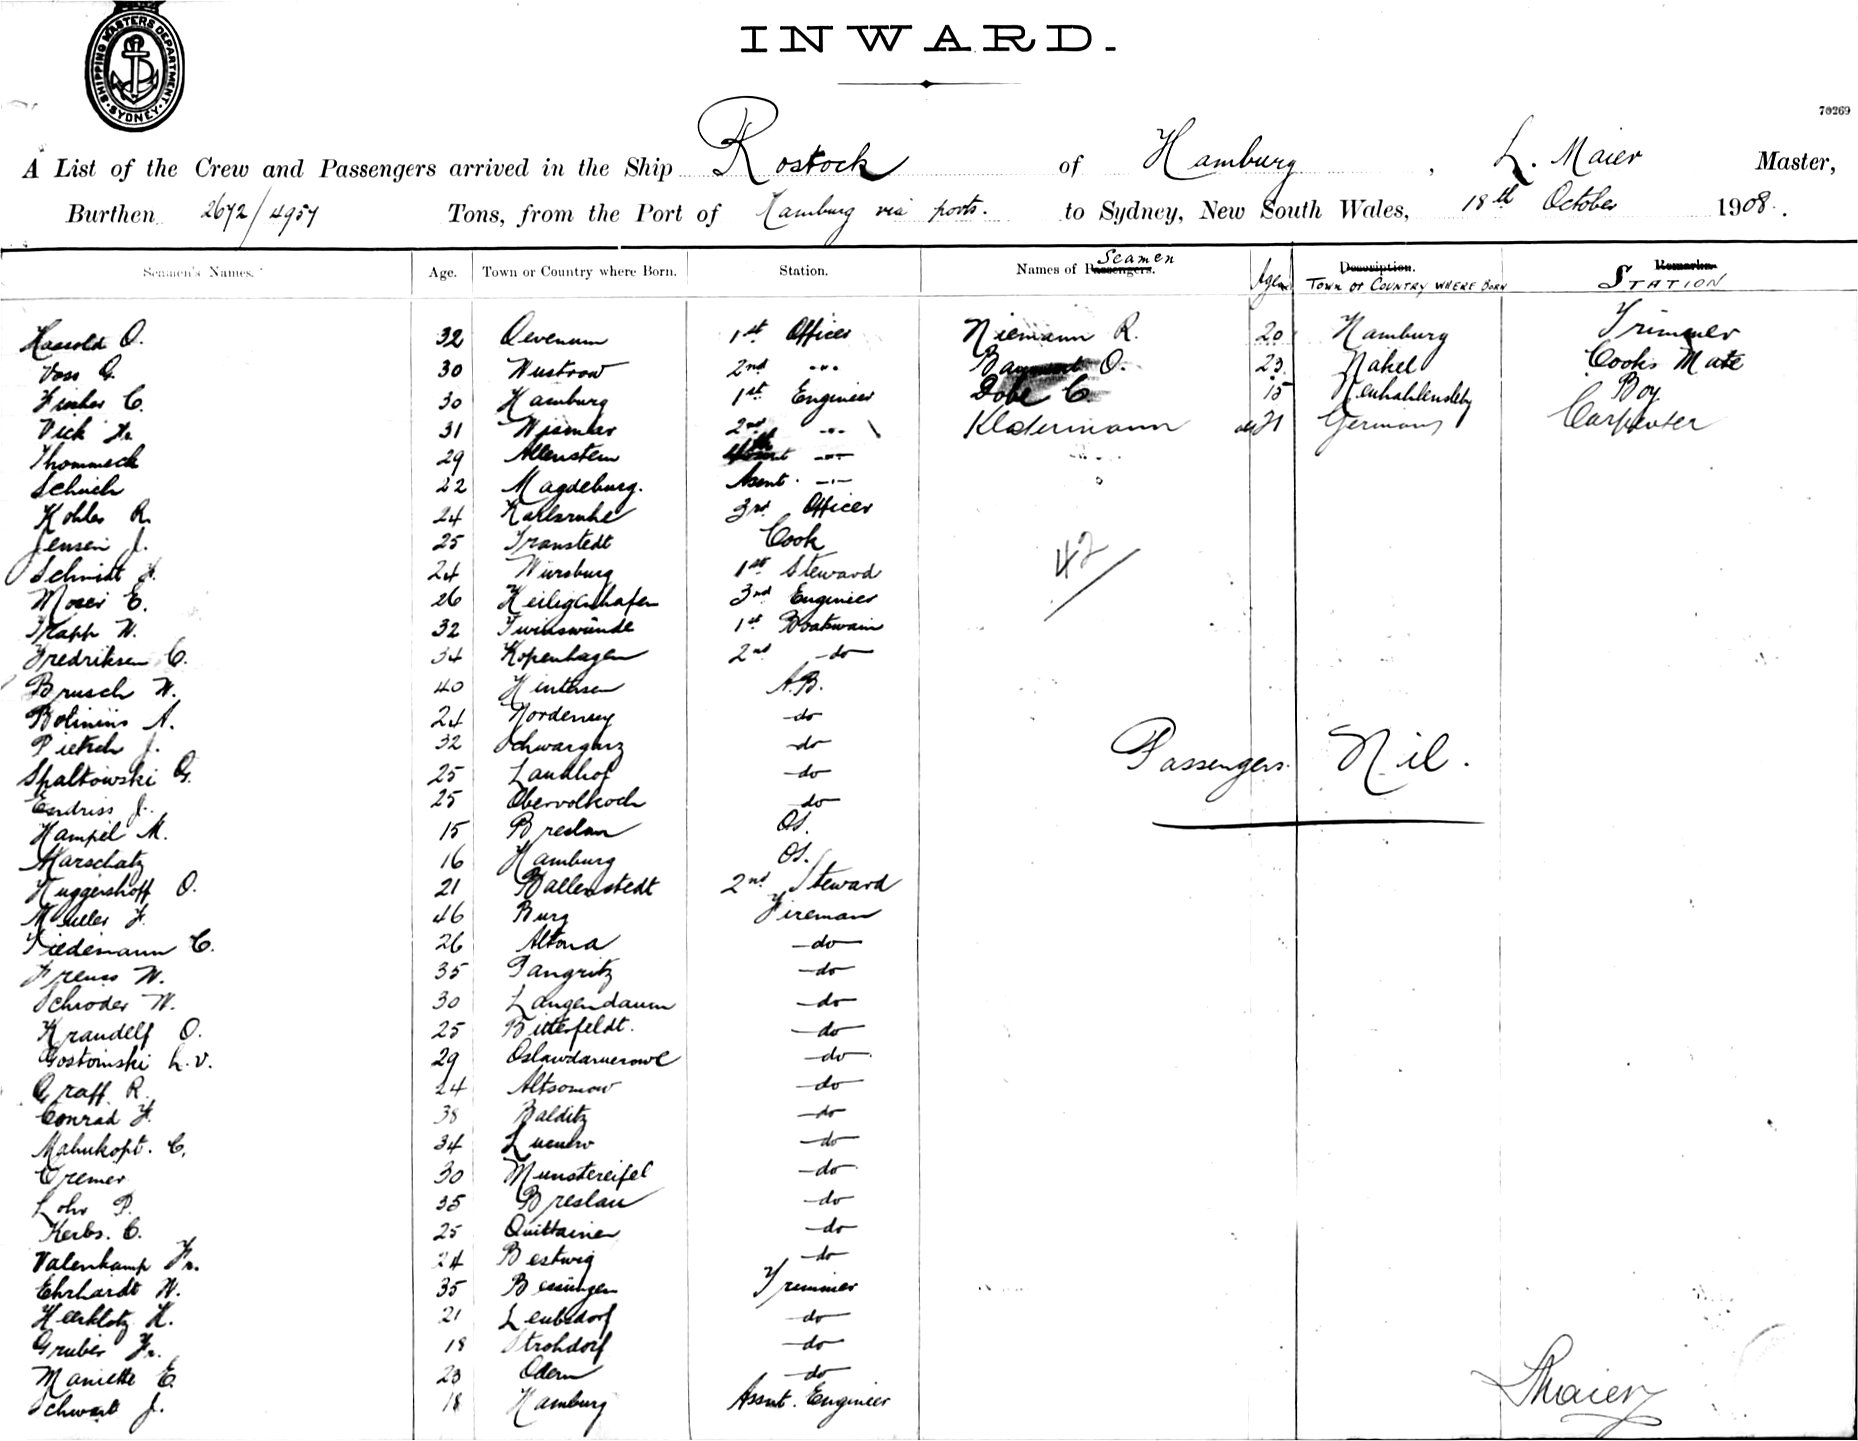 SHIPPING MASTERS DEPARTMENT. SYDNEY.
INWARD.
70269
A List of the Crew and Passengers arrived in the Ship Rostock of Hamburg, L. Maier Master,
Burthen 2672/4957 Tons, from the Port of Hamburg via ports. to Sydney, New South Wales, 18th October 1908.
Seamen's Names. Age. Town or Country where Born. Station. Names of Passengers. Seamen Age Description. Town or Country where Born Remarks. Station
Hassold O. 32 Oevenum 1st Officer Niemann R. 20 Hamburg Trimmer
Voss G. 30 Wustrow 2nd -"- O. 23 Nakel Cooks Mate
Fischer C. 30 Hamburg 1st Engineer Dobe C. 15 Neuhaldensleby Boy
Vick Fr. 31 Wismar 2nd -"- Kldermann 21 Germany Carpenter
Thommeck 29 Allenstein -"-
Schuch 22 Magdeburg. Assnt. -"-
Kohler R. 24 Karlsruhe 3rd Officer
Jensen J. 25 Transtedt Cook
Schmidt F. 24 Wursburg 1st Steward
Moser E. 26 Heiligenhafen 3rd Engineer
42
Trapp W. 32 Swinswünde 1st Boatswain
Fredriksen C. 34 Kopenhagen 2nd -do-
Brusch W. 40 Hintersee A.B.
Bolinius A. 24 Norderney -do-
Pietsch J. 32 Schwargurz -do-
Spaltowski G. 25 Landhof -do-
Passengers Nil.
Endriss J. 25 Obervolkach -do-
Hampel M. 15 Breslau OS.
Marschatz 16 Hamburg OS.
Huggershoff O. 21 Ballenstedt 2nd Steward
Muller F. 46 Burg Fireman
Tiedemann C. 26 Altona -do-
Preuss W. 35 Pangritz -do-
Schroder W. 30 Langendamm -do-
Kraudelf O. 25 Bitterfeldt. -do-
Gostomski L.v. 29 -do-
Graff R. 24 Altsomow -do-
Conrad F. 38 Balditz -do-
Mahnkopt. C. 34 -do-
Cremer 30 Munstereifel -do-
Lohr P. 35 Breslau -do-
Kerbs. C. 25 Quittainen -do-
Valenkamp Fr. 24 Bestwig -do-
Ehrhardt W. 35 Bessungen Trimmer
Herklotz K. 21 Leubsdorf -do-
Gruber Fr. 18 Strohdorf -do-
Manicke E. 23 Odern -do-
Schwart J. 18 Hamburg Assnt. Engineer
LMaier